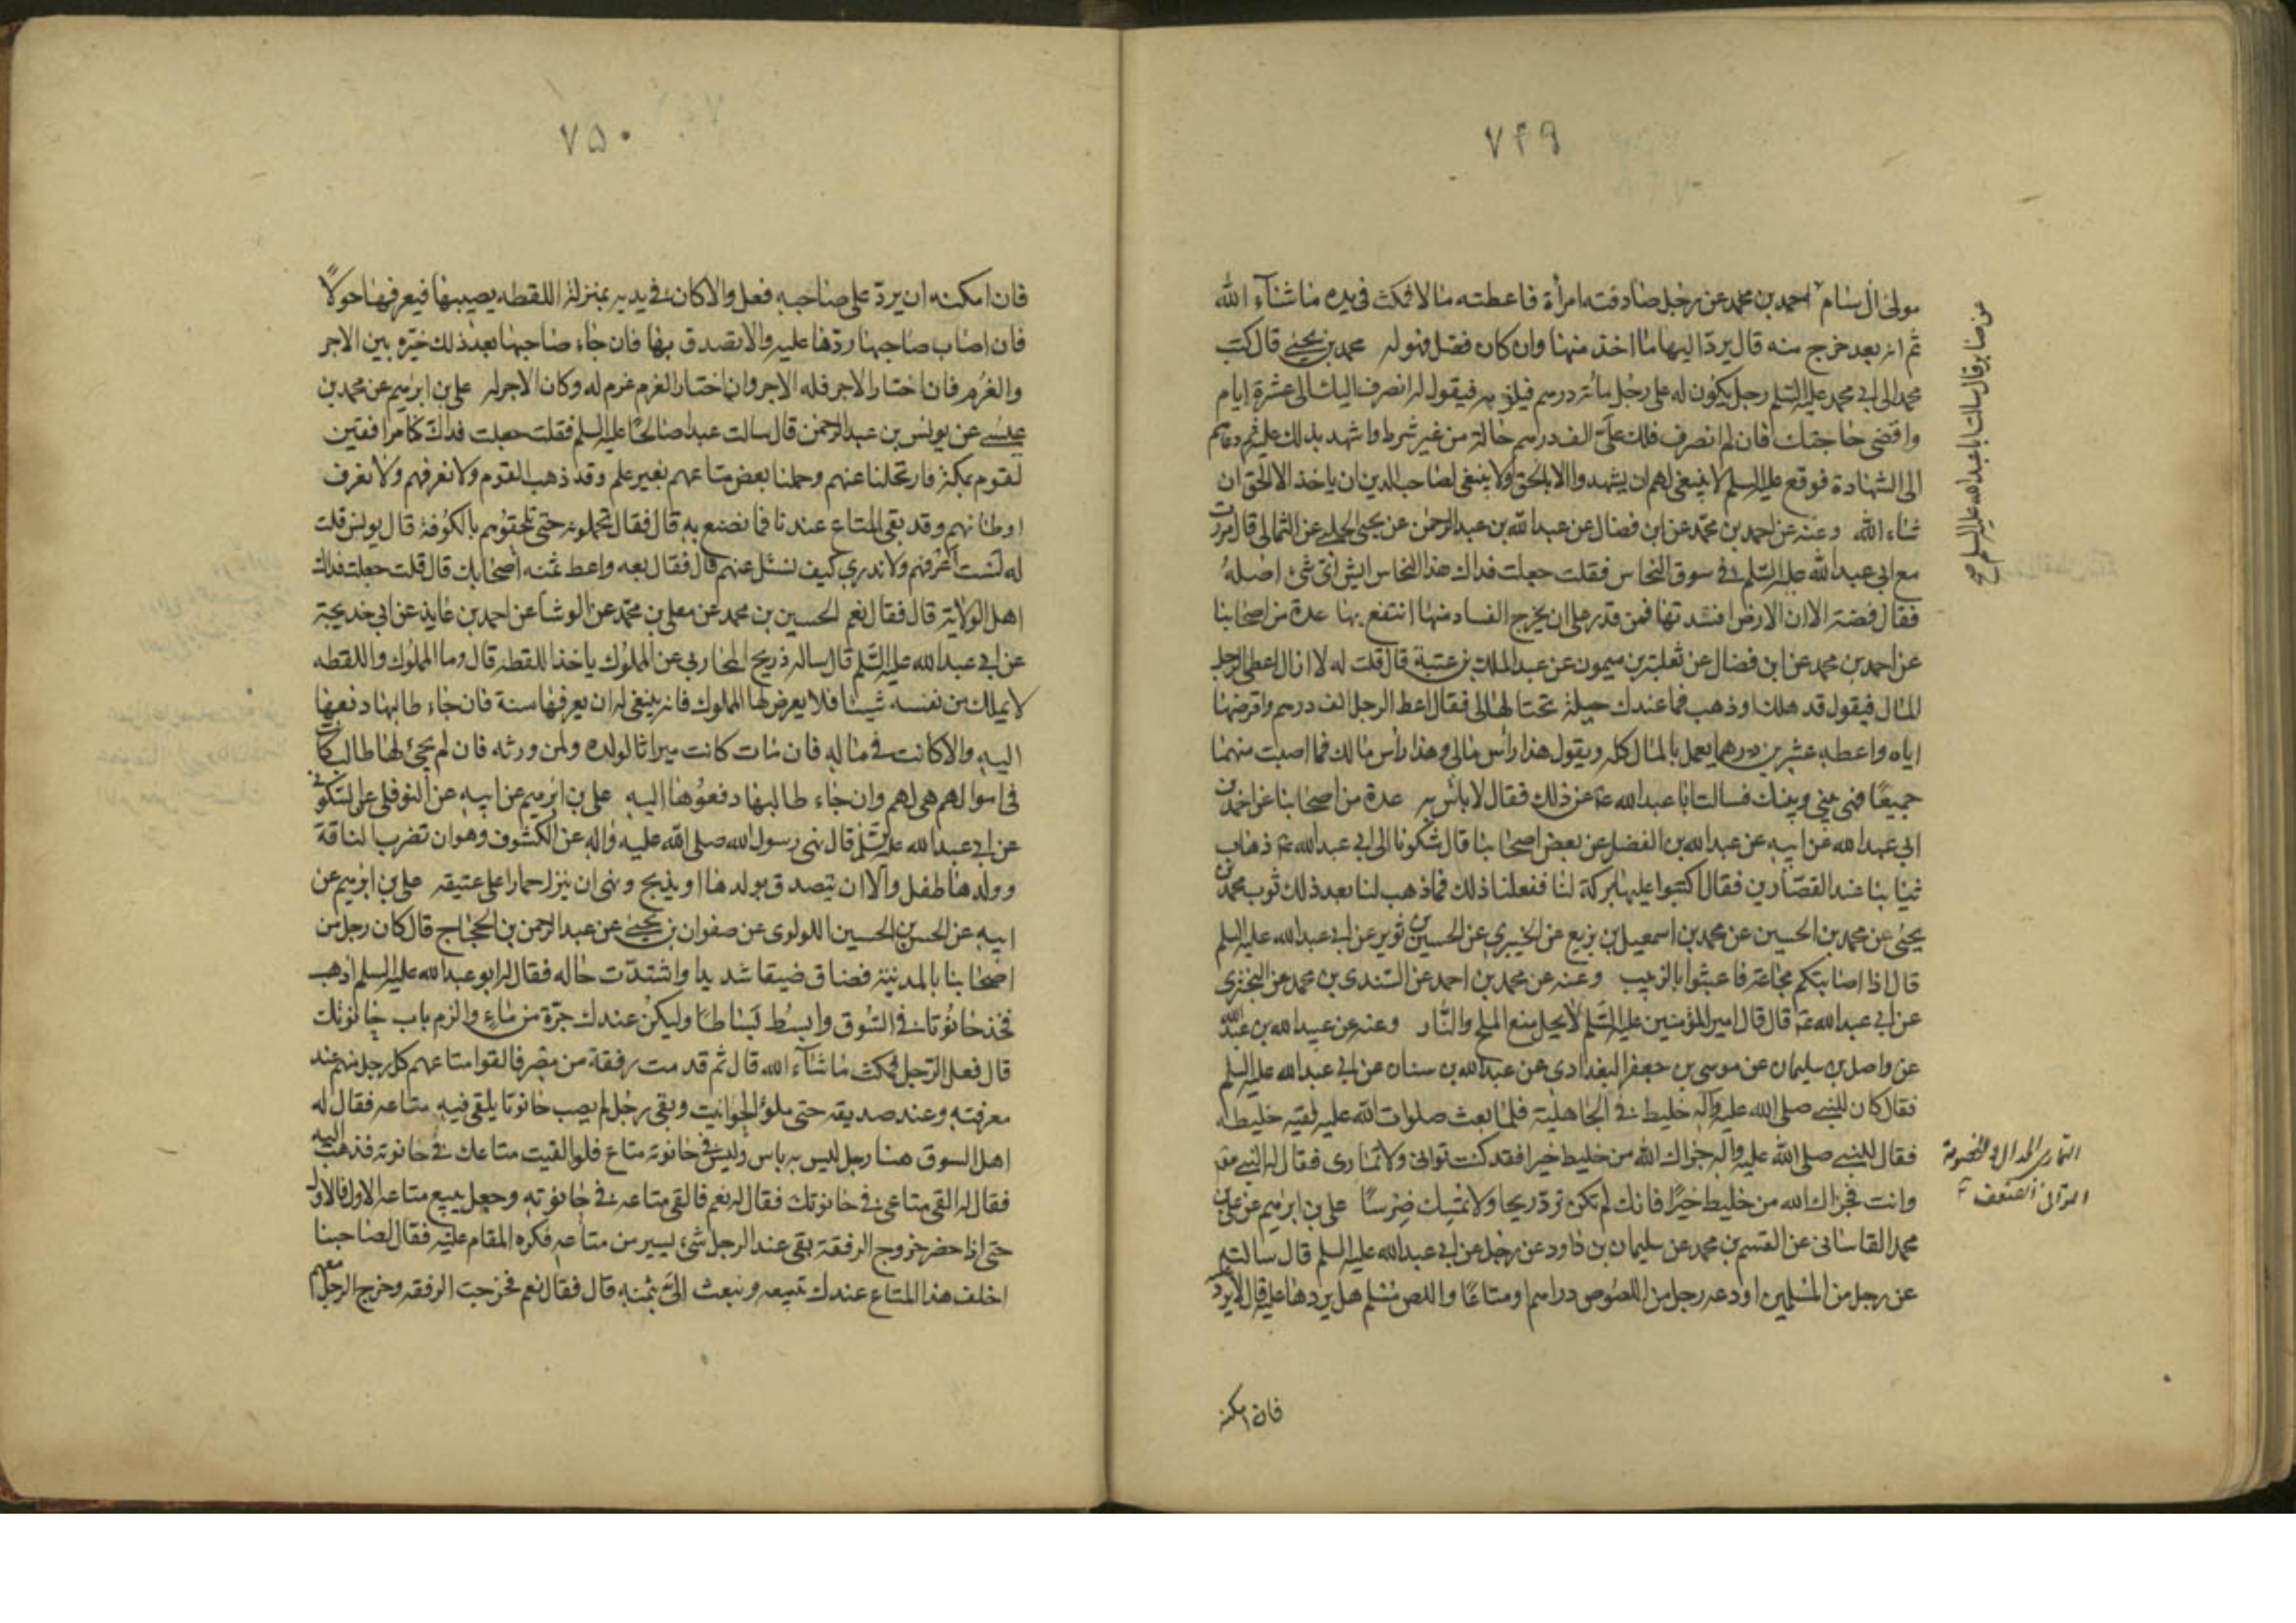 ٧٤٩
مولى آل سام احمد بن محمد عن رجل صادفته امرأة فاعطته مالا فمكث في يده ما شآء الله
ثم انه بعد خرج منه قال يردّ اليها ما اخذ منها وان كان فضل فهو له محمد بن يحيى قال كتب
محمد الى ابي محمد عليه السّلم رجل يكون له على رجل مائة درهم فيلزمه فيقول له انصرف اليك الى عشرة ايام
واقضي حاجتك فان لم انصرف فلك علىّ الف درهم حالة من غير شرط واشهد بذلك عليه ثم دعاهم
الى الشهادة فوقع عليه السلم لا ينبغي لهم ان يشهدوا الا بالحق ولا ينبغي لصاحب الدين ان ياخذ الا الحق ان
شاء الله وعنه عن احمد بن محمّد عن ابن فضال عن عبد الله بن عبد الرحمن عن يحيى الحلبي عن الثمالي قال مررت
مع ابي عبد الله عليه السّلم في سوق النحاس فقلت جعلت فداك هذا النحاس ايش اتى شئ اصلهُ
فقال فضة الا ان الارض افسدتها فمن قدر على ان يخرج الفساد منها انتفع بها عدة من اصحابنا
عن احمد بن محمد عن ابن فضال عن ثعلبة بن ميمون عن عبد الملك بن عتبة قال قلت له لا ازال اعطى الرجل
المال فيقول قد هلك او ذهب فما عندك حيلة تحتالها لى فقال اعط الرجل الف درهم واقرضها
اياه واعطه عشرين درهما يعمل بالمال كله ويقول هذا رأس مالى وهذا رأس مالك فما اصبت منهما
جميعًا فهى بينى وبينك فسالت ابا عبد الله ع عن ذلك فقال لا باس به عدة من اصحابنا عن احمد بن
ابي عبد الله عن ابيه عن عبد الله بن الفضل عن بعض اصحابنا قال شكونا الى ابي عبد الله ع ذهاب
ثيابنا عند القصّارين فقال اكتبوا عليها بركة لنا ففعلنا ذلك فما ذهب لنا بعد ذلك ثوب محمد بن
يحيى عن محمد بن الحسين عن محمد بن اسمعيل بن بزيع عن الخيبري عن الحسين بن ثوير عن ابي عبد الله عليه السلم
قال اذا اصابتكم مجاعة فاعبثوا بالزبيب وعنه عن محمد بن احمد عن السّندى بن محمد عن البخترى
عن ابي عبد الله ع قال قال امير المؤمنين عليه السّلم لا يحل منع الملح والنّار وعنه عن عبيد الله بن عبد الله
عن واصل بن سليمان عن موسى بن جعفر البغدادى عن عبد الله بن سنان عن ابي عبد الله عليه السلم
فقال كان للنبى صلى الله عليه وآله خليط في الجاهليّة فلمّا بعث صلوات الله عليه لقيه خليطه
فقال للنبى صلى الله عليه واله جزاك الله من خليط خيرا فقد كنت تواتى ولا تمارى فقال له النبى
وانت فجزاك الله من خليط خيرًا فانك لم تكن تردّ ريحا ولا تمسك ضِرسًا على بن ابرهيم عن على بن
محمد القاسانى عن القسم بن محمد عن سليمان بن داود عن رجل عن ابي عبد الله عليه السلم قال سالته
عن رجل من المُسْلمين اودعه رجل من اللصُوص دراهم ومتاعًا واللص مُسْلم هل يردها عليه قال لا يردّ
فان امكنه
قال سالت ابا عبد الله عليه السلم صح
التمارى الجدال والخصومة
٧٥٠
فان امكنه ان يردّ على صاحبه فعل والا كان في يديه بمنزلة اللقطه يصيبها فيعرفها حولًا
فان اصاب صاحبها ردّها عليه والا تصدق بها فان جاء صاحبها بعد ذلك خيّره بين الاجر
والغُرْم فان اختار الاجر فله الاجر وان اختار الغرم غرم له وكان الاجر له على بن ابرهيم عن محمد بن
عيسى عن يونس بن عبد الرحمن قال سالت عبدا صالحًا عليه السلم فقلت جعلت فداك كنا مرافقين
لقوم بمكة فارتحلنا عنهم وحملنا بعض متاعهم بغير علم وقد ذهب القوم ولا نعرفهم ولا نعرف
اوطانهم وقد بقى المتاع عندنا فما نصنع به قال فقال تحملونه حتى تلحقوهم بالكُوفة قال يونس قلت
له لست اعرفهم ولا ندري كيف نسئل عنهم قال فقال بعه واعط ثمنه اصحابك قال قلت جعلت فداك
اهل الولاية قال فقال نعم الحسين بن محمد عن معلى بن محمّد عن الوشاء عن احمد بن عايذ عن ابي خديجة
عن ابي عبد الله عليه السّلم قال ساله ذريح المحاربى عن المملوك ياخذ اللقطه قال وما المملوك واللقطه
لا يملك من نفسه شيئا فلا يعرض لها المملوك فانه ينبغى له ان يعرفها سنة فان جاء طالبها دفعها
اليه والا كانت في ماله فان مات كانت ميراثا لولده ولمن ورثه فان لم يجئ لها طالب كانت
في اموالهم هى لهم وان جاء طالبها دفعوها اليه على بن ابرهيم عن ابيه عن النوفلى عن السّكونى
عن ابي عبد الله عليه السّلم قال نهى رسول الله صلى الله عليه واله عن الكشوف وهو ان تضرب الناقة
وولدها طفل والا ان يتصدق بولدها او يذبح ونهى ان ينزا حمارا على عتيقه على بن ابرهيم عن
ابيه عن الحسن بن الحسين اللولوى عن صفوان بن يحيى عن عبد الرحمن بن الحجّاج قال كان رجل من
اصحابنا بالمدينة فضاق ضيقا شديدا واشتدّت حاله فقال له ابو عبد الله عليه السلم اذهب
فخذ حانوتا في السُوق وابسُط بَسَاطًا وليكن عندك جرّة من ماءٍ والزم باب حانوتك
قال ففعل الرّجل فمكث ما شآء الله قال ثم قدمت رفقة من مِصْر فالقوا متاعهم كل رجل منهم عند
معرفته وعند صديقه حتى ملؤ الحوانيت وبقى رجل لم يصب حانوتا يلقى فيه متاعه فقال له
اهل السوق هنا رجل ليس به باس وليس في حانوته متاع فلو القيت متاعك في حانوته فذهب اليه
فقال له القى متاعى في حانوتك فقال له نعم فالقى متاعه في حانوته وجعل يبيع متاعه الاول فالاول
حتى اذا حضر خروج الرفقة بقى عند الرجل شىء يسير من متاعه فكره المقام عليه فقال لصاحبنا
اخلف هذا المتاع عندك تبيعه وتبعث الىّ بثمنه قال فقال نعم فخرجت الرفقه وخرج الرجل معهم